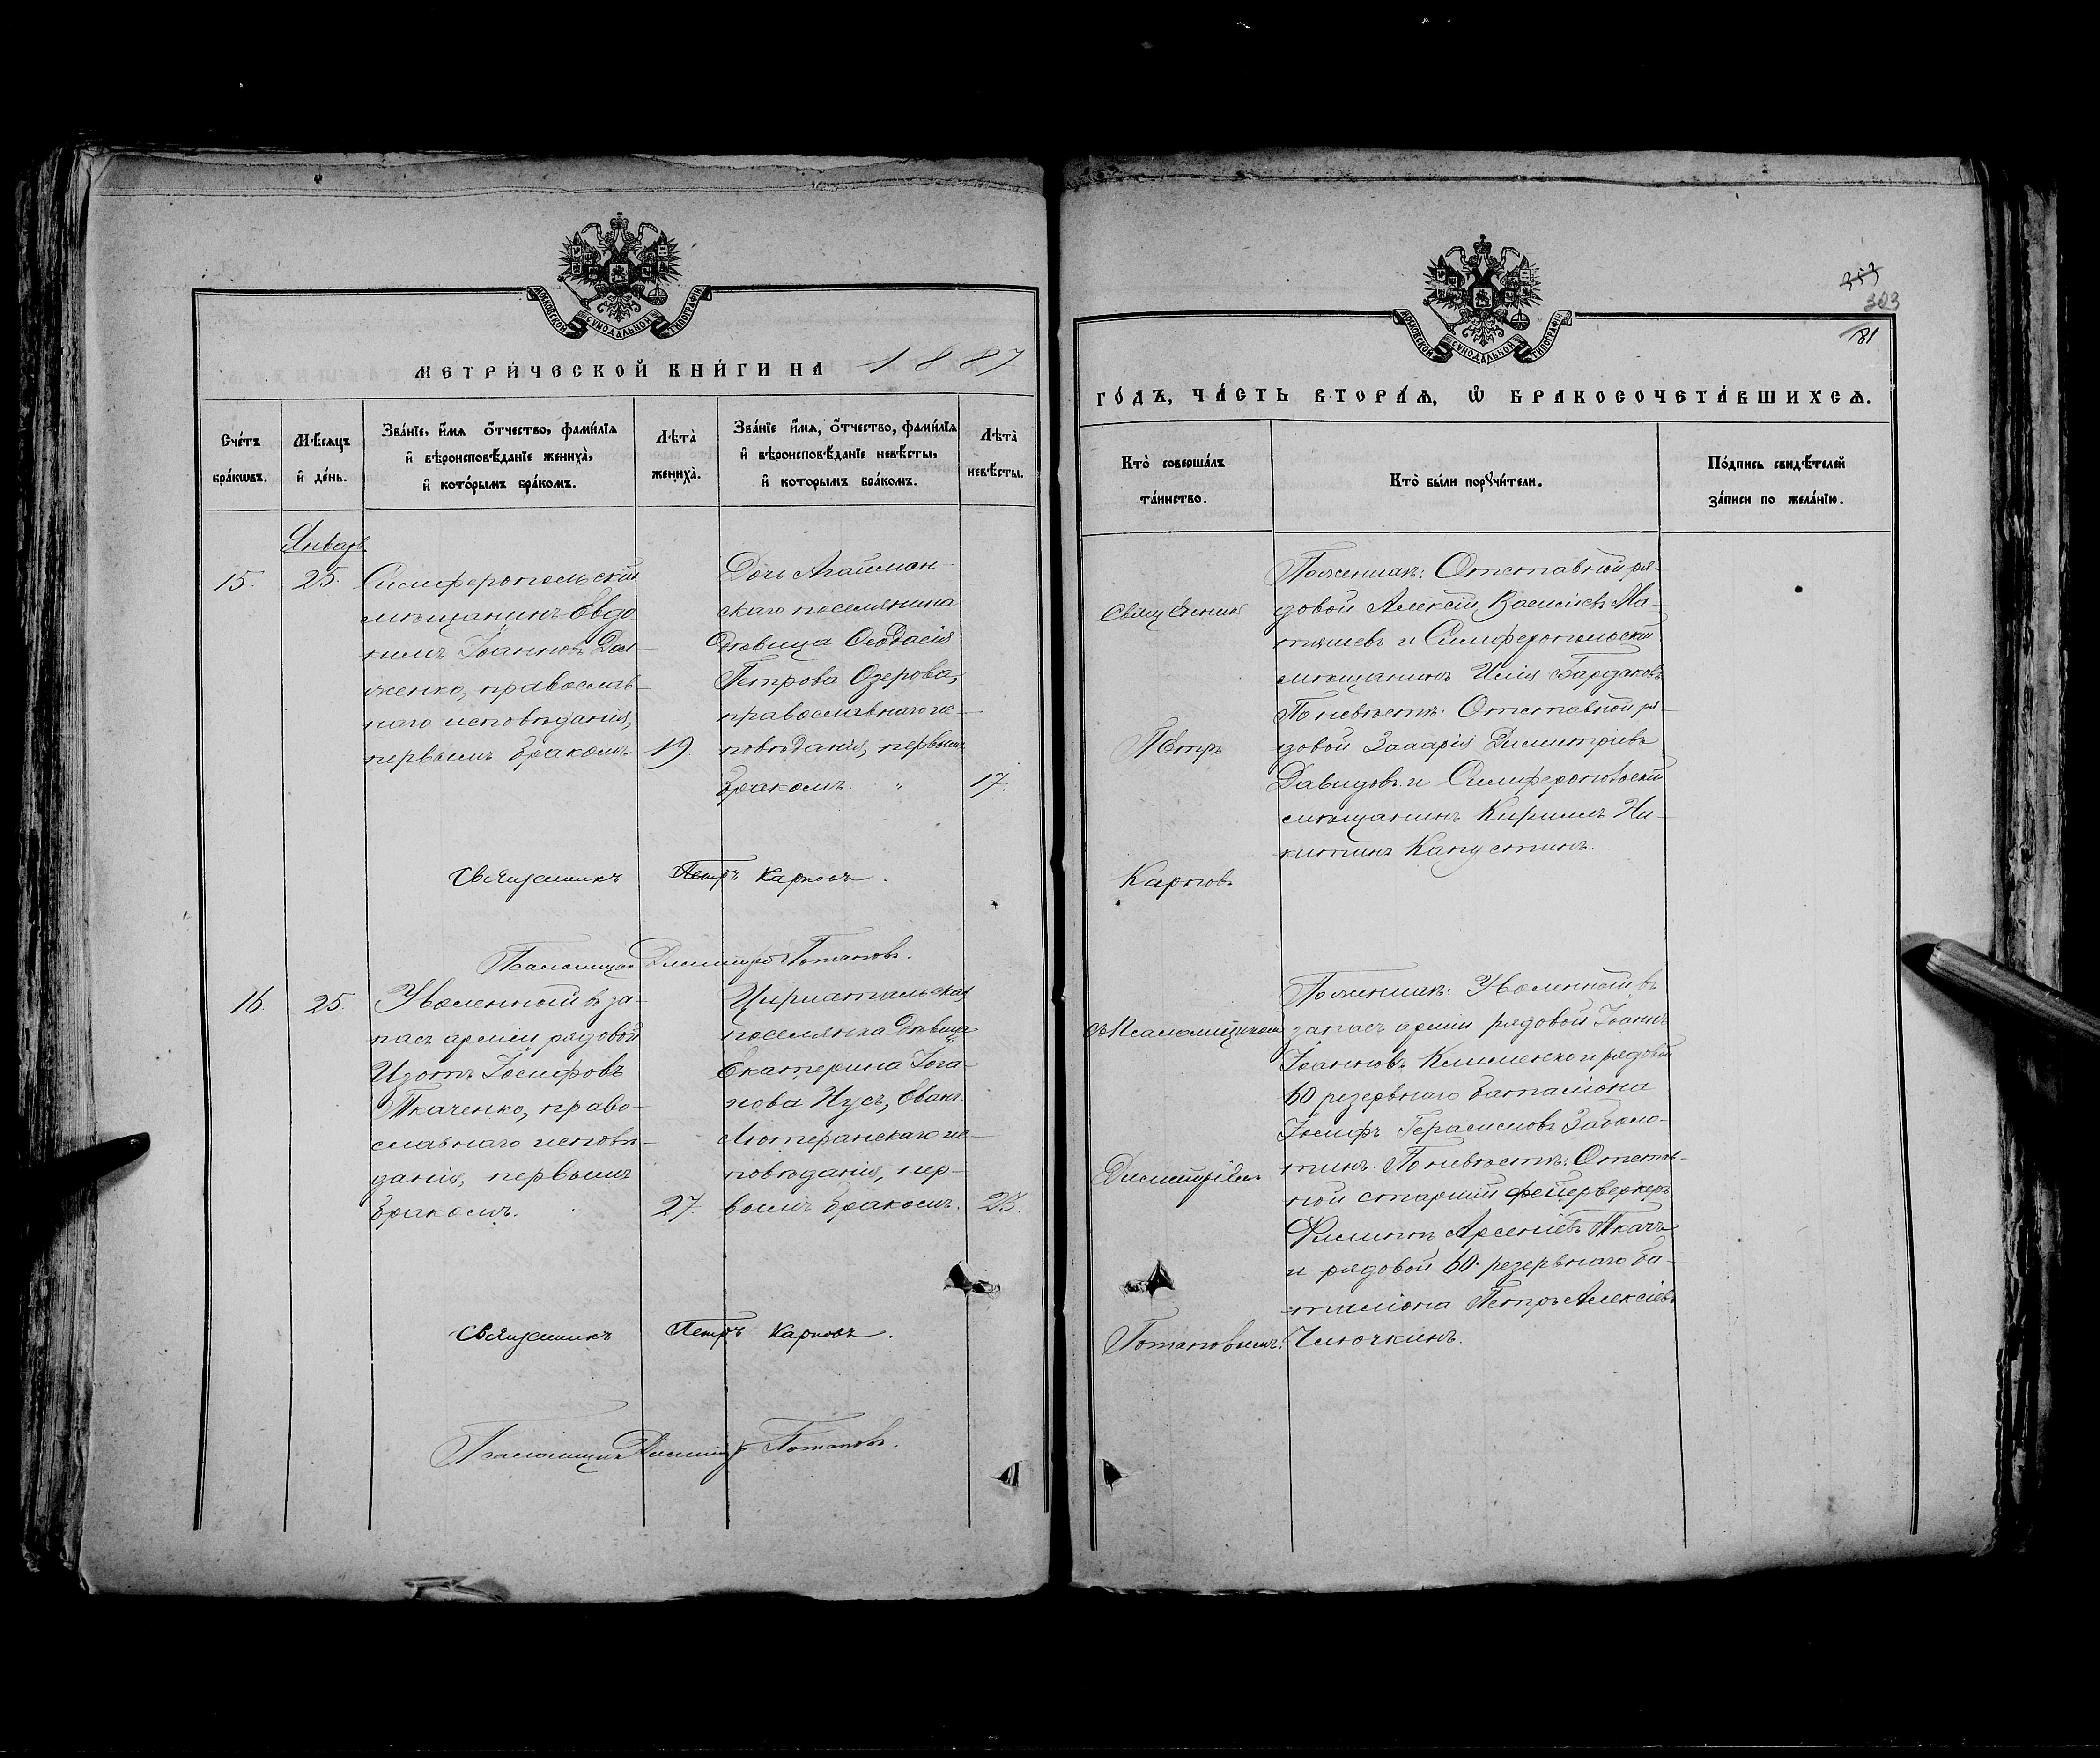 МОСКОВСКОЙ СУНОДАЛЬНОЙ ТИПОГРАФІИ
МЕТРИ́ЧЕСКОЙ КНИ́ГИ НА 1887
Сче́тъ бра́кѡвъ.
Мѣ́сяцъ и҆ де́нь.
Зва́нїе, и҆́мѧ ѻ҆́тчество, фами́лїѧ
и҆ вѣроисповѣ́данїе жениха̀,
и҆ кото́рымъ бра́комъ.
Лѣта̀ жениха̀.
Зва́нїе и҆́мѧ, ѻ҆́тчество, фами́лїѧ
и҆ вѣроисповѣ́данїе невѣ́сты,
и҆ которымъ бра́комъ.
Лѣта̀ невѣ́сты.
Январь
15. 25.
Симферопольскій
мѣщанинъ Евдо
кимъ Іоанновъ Дол-
женко, православ-
наго исповѣданія,
первымъ бракомъ. 19.
Дочь Агайман-
скаго поселянина
дѣвица Ѳеодосія
Петрова Озерова,
православнаго ис-
повѣданія, первымъ
бракомъ. „ 17.
Священникъ Петръ Карповъ.
Псаломщикъ Димитрій Потаповъ.
16. 25.
Уволенный въ за-
пасъ арміи рядовой
Изотъ Іосифовъ
Ткаченко, право-
славнаго исповѣ-
данія, первымъ
бракомъ. 27.
поселянка дѣвица
Екатерина Іога-
нова Нусъ, Еванг.
Лютеранскаго ис-
повѣданія, пер-
вымъ бракомъ. 23.
Священникъ Петръ Карповъ.
Псаломщикъ Димитр Потаповъ.
МОСКОВСКОЙ СУНОДАЛЬНОЙ ТИПОГРАФІИ
353
303
81
ГО́ДЪ, ЧА́СТЬ ВТОРА́Ѧ, Ѡ҆ БРАКОСОЧЕТА́ВШИХСѦ.
Кто̀ соверша́лъ
та́инство.
Кто̀ бы́ли порꙋчи́тели.
По́дпись свидѣ́телей
за́писи по жела́нїю.
Священникъ
Петръ
Карповъ
По женихѣ: Отставной ря-
довой Алексій Василіевъ Ма-
тяшевъ и Симферопольскій
мѣщанинъ Илія Бардаковъ
По невѣстѣ: Отставной ря-
довой Захарія Димитріевъ
Давидовъ и Симферопольскій
мѣщанинъ Кириллъ Ни-
китинъ Капустинъ.
съ Псаломщикомъ
Димитріемъ
Потаповымъ.
По женихѣ: Уволенный въ
запасъ арміи рядовой Іоаннъ
Іоанновъ Клименко и рядовой
60 резервнаго баталіона
Іосифъ Герасимовъ Заболо-
тинъ. По невѣстѣ: Отстав-
ной старшій фейерверкеръ
Филиппъ Арсеніевъ Ткачъ
и рядовой 60. резервнаго ба-
таліона Петръ Алексіевъ
Чмочкинъ.